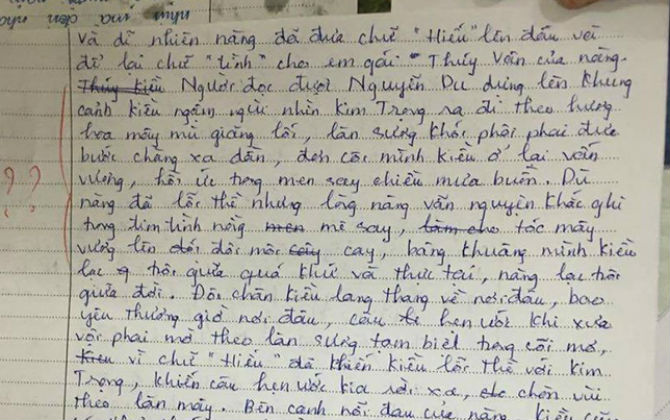 và dĩ nhiên nàng đã đưa chữ "Hiếu" lên đầu và
để lại chữ "tình" cho em gái - Thúy Vân của nàng.
Thúy Kiều Người đọc được Nguyễn Du dựng lên khung
cảnh kiều ngậm ngùi nhìn kim Trọng ra đi theo hương
hoa mây mù giăng lối, làn sương khói phôi phai đưa
bước chàng xa dần, đơn côi mình kiều ở lại vấn
vương, hồi ức trong men say chiều mưa buồn. Dù
nàng đã lỡ thề nhưng lòng nàng vẫn nguyên khắc ghi
trong tim tình nồng men mê say, làm cho tóc mây
vương lên đôi đôi môi cay, bâng khuâng mình kiều
lạc trôi giữa quá khứ và thực tại, nàng lạc trôi
giữa đời. Đôi chân kiều lang thang về nơi đâu, bao
yêu thương giờ nơi đâu, câu hẹn ước khi xưa
vội phai mờ theo làn sương tam biệt trong cõi mơ,
vì chữ "Hiếu" đã khiến kiều lỡ thề với kim
Trọng, khiến câu hẹn ước kia rời xa, chôn vùi
theo làn mây. Bên cạnh nỗi đau của nàng kiều
??